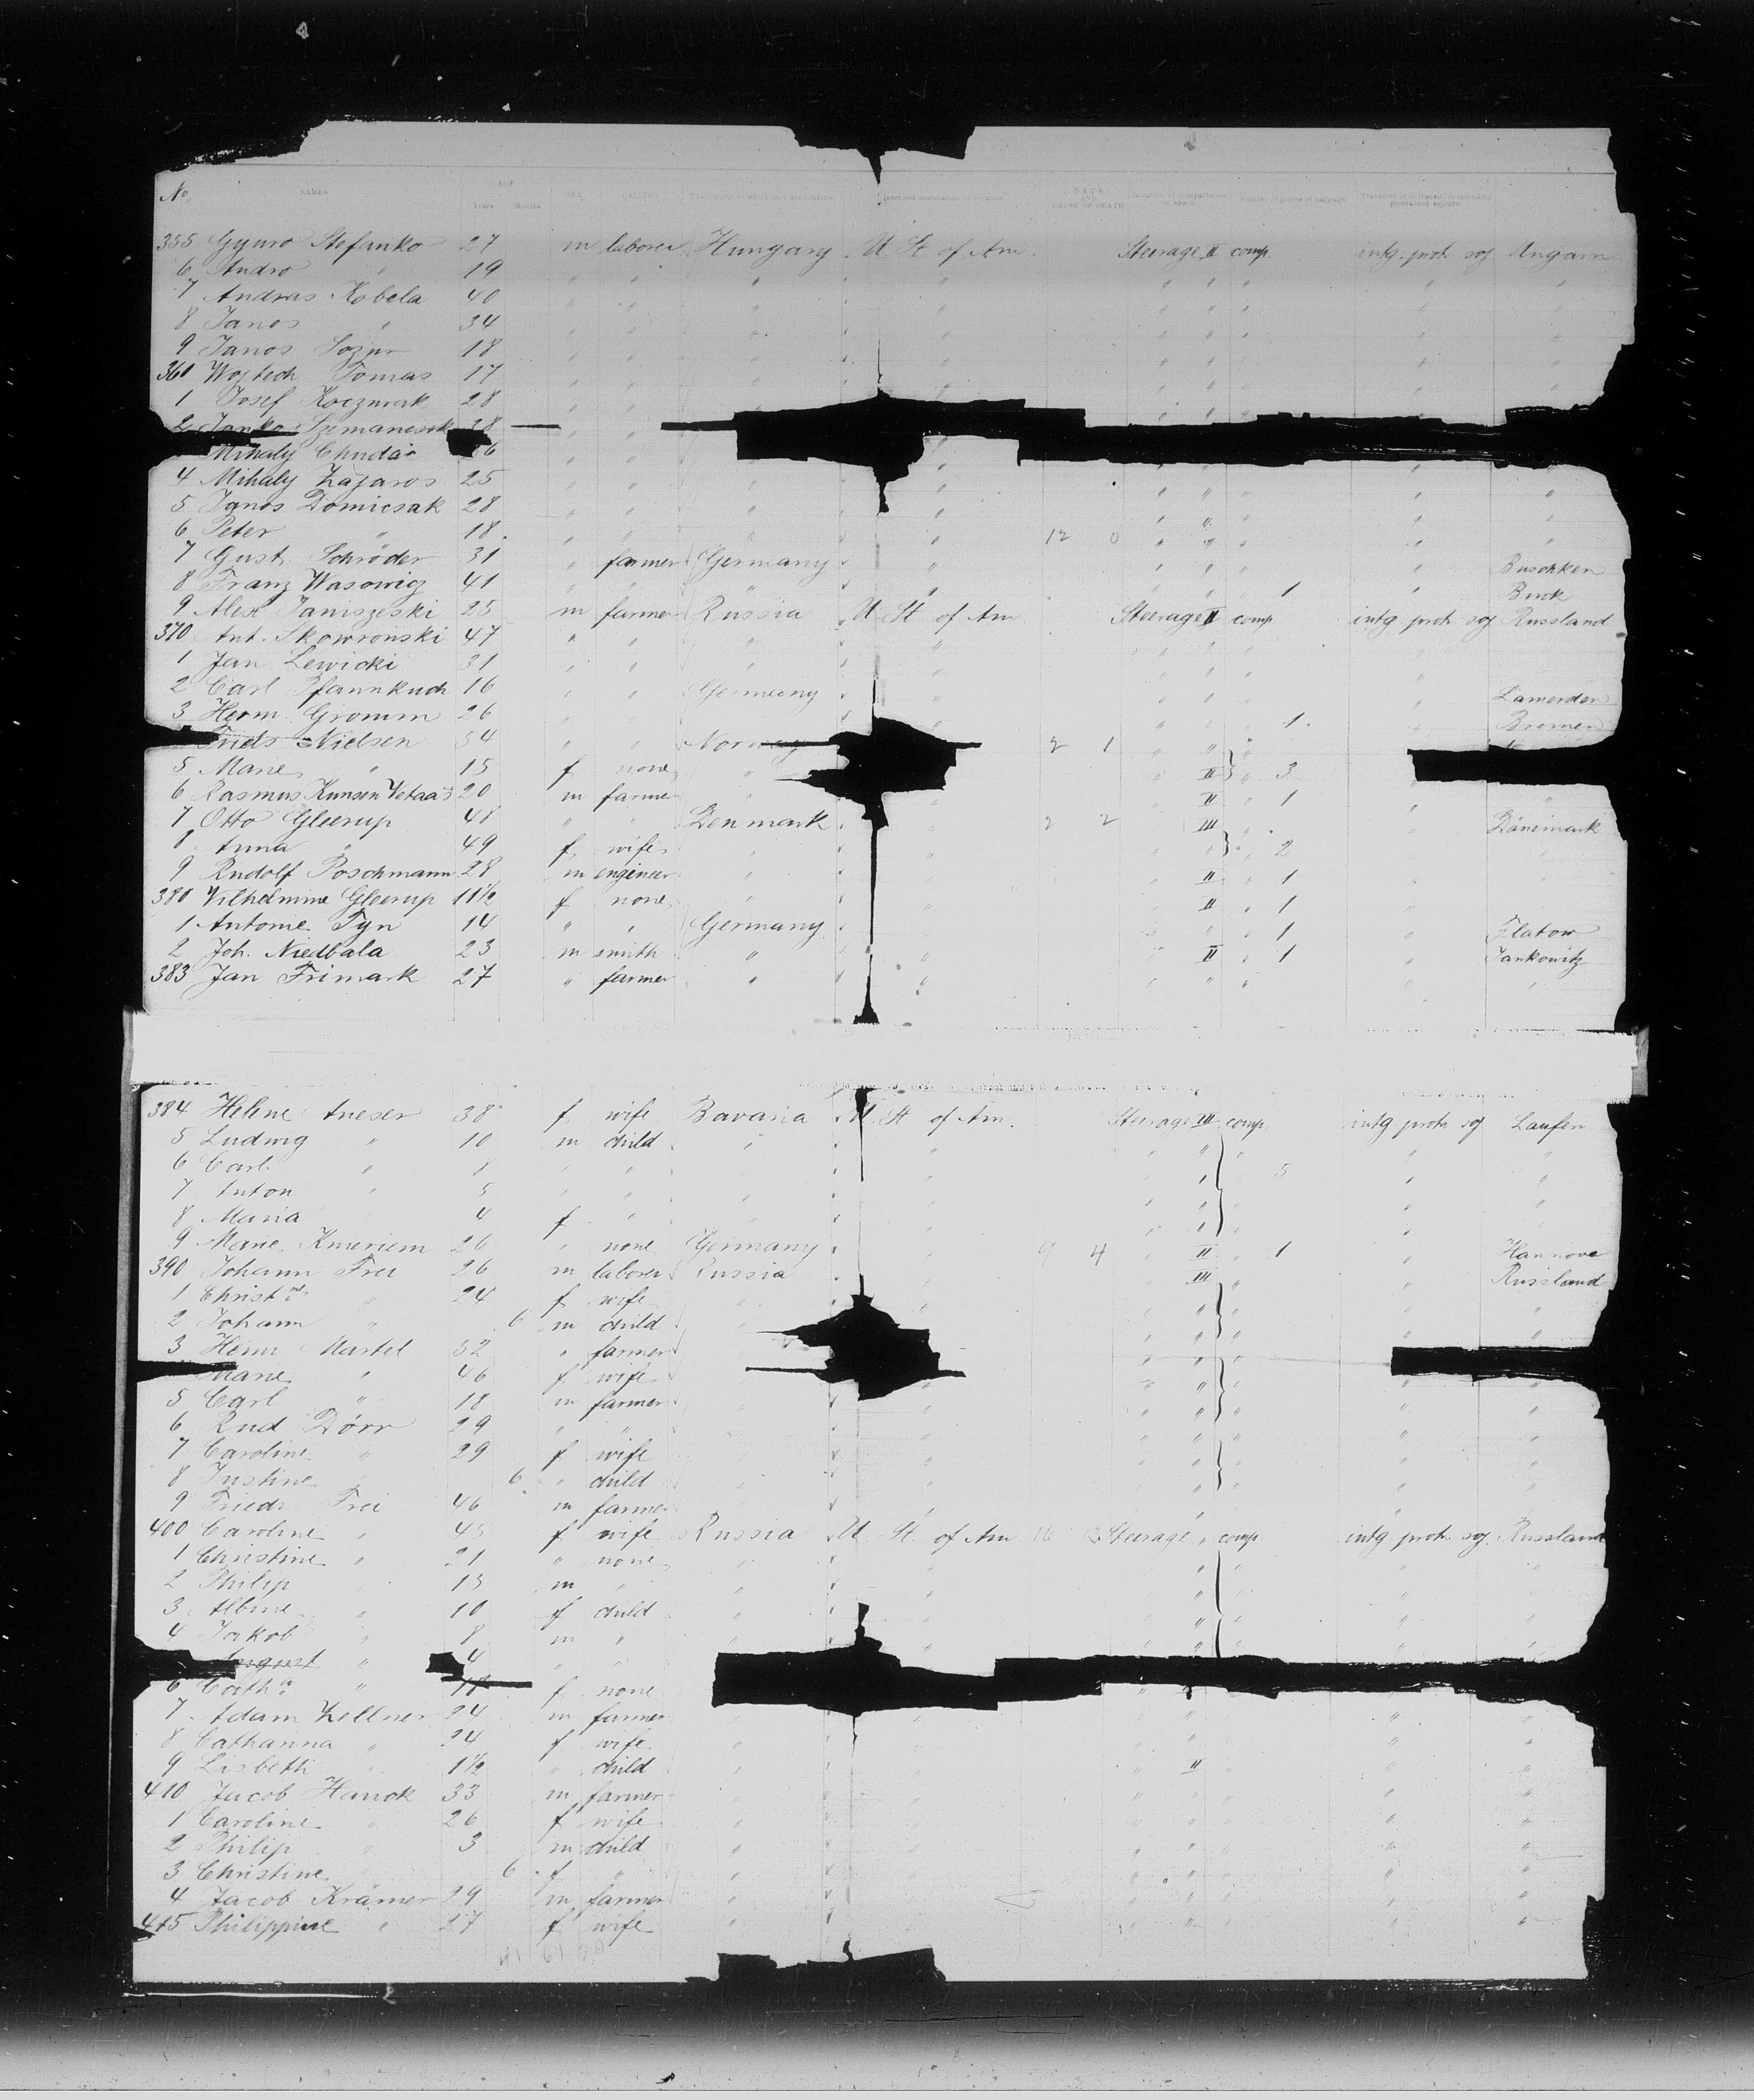 No NAMES. AGE Years Months SEX. CALLING. DATE AND CAUSE OF DEATH
355 Gyuro Stefanko 27 m laborer Hungary U. St of Am Steerage II comp. intg. protr. soj Ungarn
6 Andro " 19 " " " " " " " " "
7 Andras Kobela 40 " " " " " " " " "
8 Janos " 34 " " " " " " " " "
9 Janos 18 " " " " " " " " "
360 Wojtech Tomas 17 " " " " " " " " "
1 Josef Koczurak 28 " " " " " "
2 Janko 28 " "
Mihaly Chudar 6 " " " " " "
4 Mihaly Lazaros 25 " " " " " " " " "
5 Janos Domicsak 28 " " " " " " " " "
6 Peter " 18 " " " " 12 0 " " " " "
7 Gust. Schröder 31 " farmer Germany " " " " " Buschken
8 Franz Wasowicz 41 " " " " " " " 1 " Buck
9 Alex Janiszeski 25 m farmer Russia U. St of Am Steerage II comp intg protr soj Russland
370 Ant. Skowronski 47 " " " " " " " " "
1 Jan Lewicki 31 " " " " " " " " "
2 Carl Pfannkuch 16 " " Germany " " " " " Lamerden
3 Herm. Gromm 26 " " " " " " 1 " Bremen
Nielsen 34 " " Norway 2 1 " " "
5 Marie " 15 f none " " II " 3
6 Rasmus Kunsen Vetaas 20 m farmer " " II " 1 " "
7 Otto Gleerup 48 " " Denmark " 2 2 III " " Dänemark
8 Anna " 49 f wife " " " " " 2 " "
9 Rudolf Poschmann 28 m engineer " " II " 1 " "
380 Vilhelmine Gleerup 11½ f none " " II " 1 " "
1 Antonie Tyn 14 " " Germany " " " 1 " Flatow
2 Joh. Niedbala 23 m smith " " " II " 1 " Jankowitz
383 Jan Frimark 27 " farmer " " " " " " "
384 Helene Aneser 38 f wife Bavaria U. St of Am. Steerage III comp. intg protr soj Laufen
5 Ludwig " 10 m child " " " " " " "
6 Carl " 8 " " " " " " " 5 " "
7 Anton " 5 " " " " " " " " "
8 Maria 4 f " " " " " " " "
9 Marie 26 " none Germany " 9 4 " II " 1 " Hannove
390 Johann Frei 26 m laborer Russia " III " " Russland
1 Christne " 24 f wife " " " " " "
2 Johann " 6 m child " " " " " "
3 Heinr Martel 52 " farmer " " "
Marie " 46 f wife " " " " " "
5 Carl " 18 m farmer " " " " " " "
6 Rud Dörr 29 " " " " " " " " "
7 Caroline " 29 f wife " " " " " " "
8 Justine 6 " child " " " " " " "
9 Friedr Frei 46 m farmer " " " " " " "
400 Caroline " 45 f wife Russia U. St. of Am Steerage " comp intg protr soj. Russland
1 Christine " 21 " none " " " " " " "
2 Philip " 13 m " " " " " " " "
3 Albine " 10 f child " " " " " " "
4 Jakob " 8 m " " " " " " " "
August " 4 " "
6 Catha " f none " "
7 Adam Zellner 24 m farmer " " " " "
8 Catharina " 24 f wife " " " " "
9 Lisbeth " 1½ " child " " " II " " "
410 Jacob Hauck 33 m farmer " " " " " " "
1 Caroline " 26 f wife " " " " " " "
2 Philip " 3 m child " " " " " " "
3 Christine 6 f " " " " " " " "
4 Jacob Krämer 29 m farmer " " " " " " "
415 Philippine " 27 f wife " " " " " "